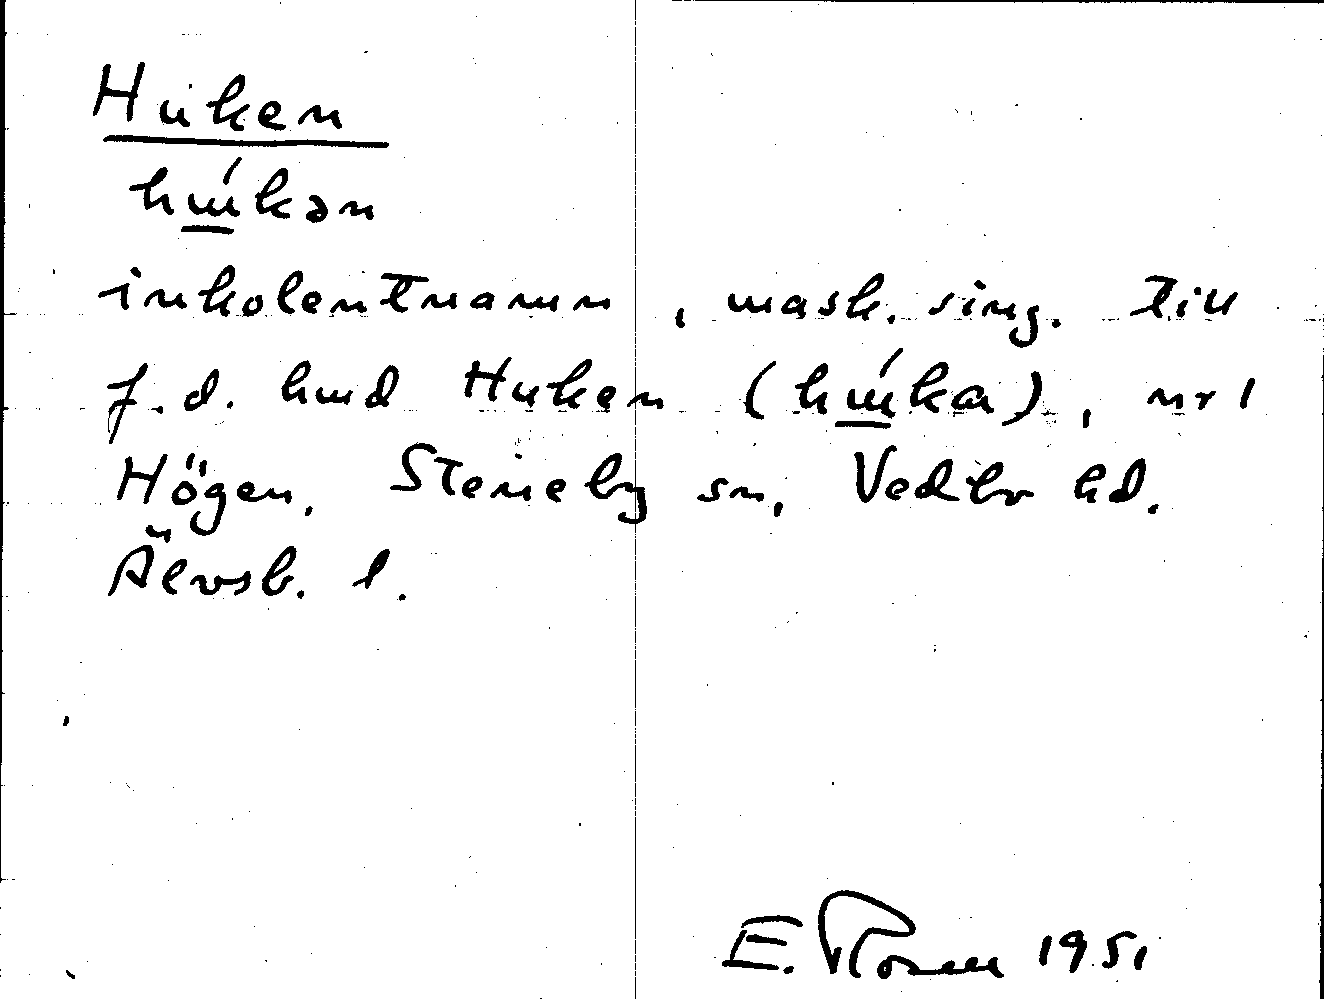 Huken
hɯ́kən
inkolentnamn, mask. sing. till
f.d. hmd Huken (hɯ́ka), nr 1
Högen, Steneby sn, Vedbo hd.
Älvsb. l.
E. 1951